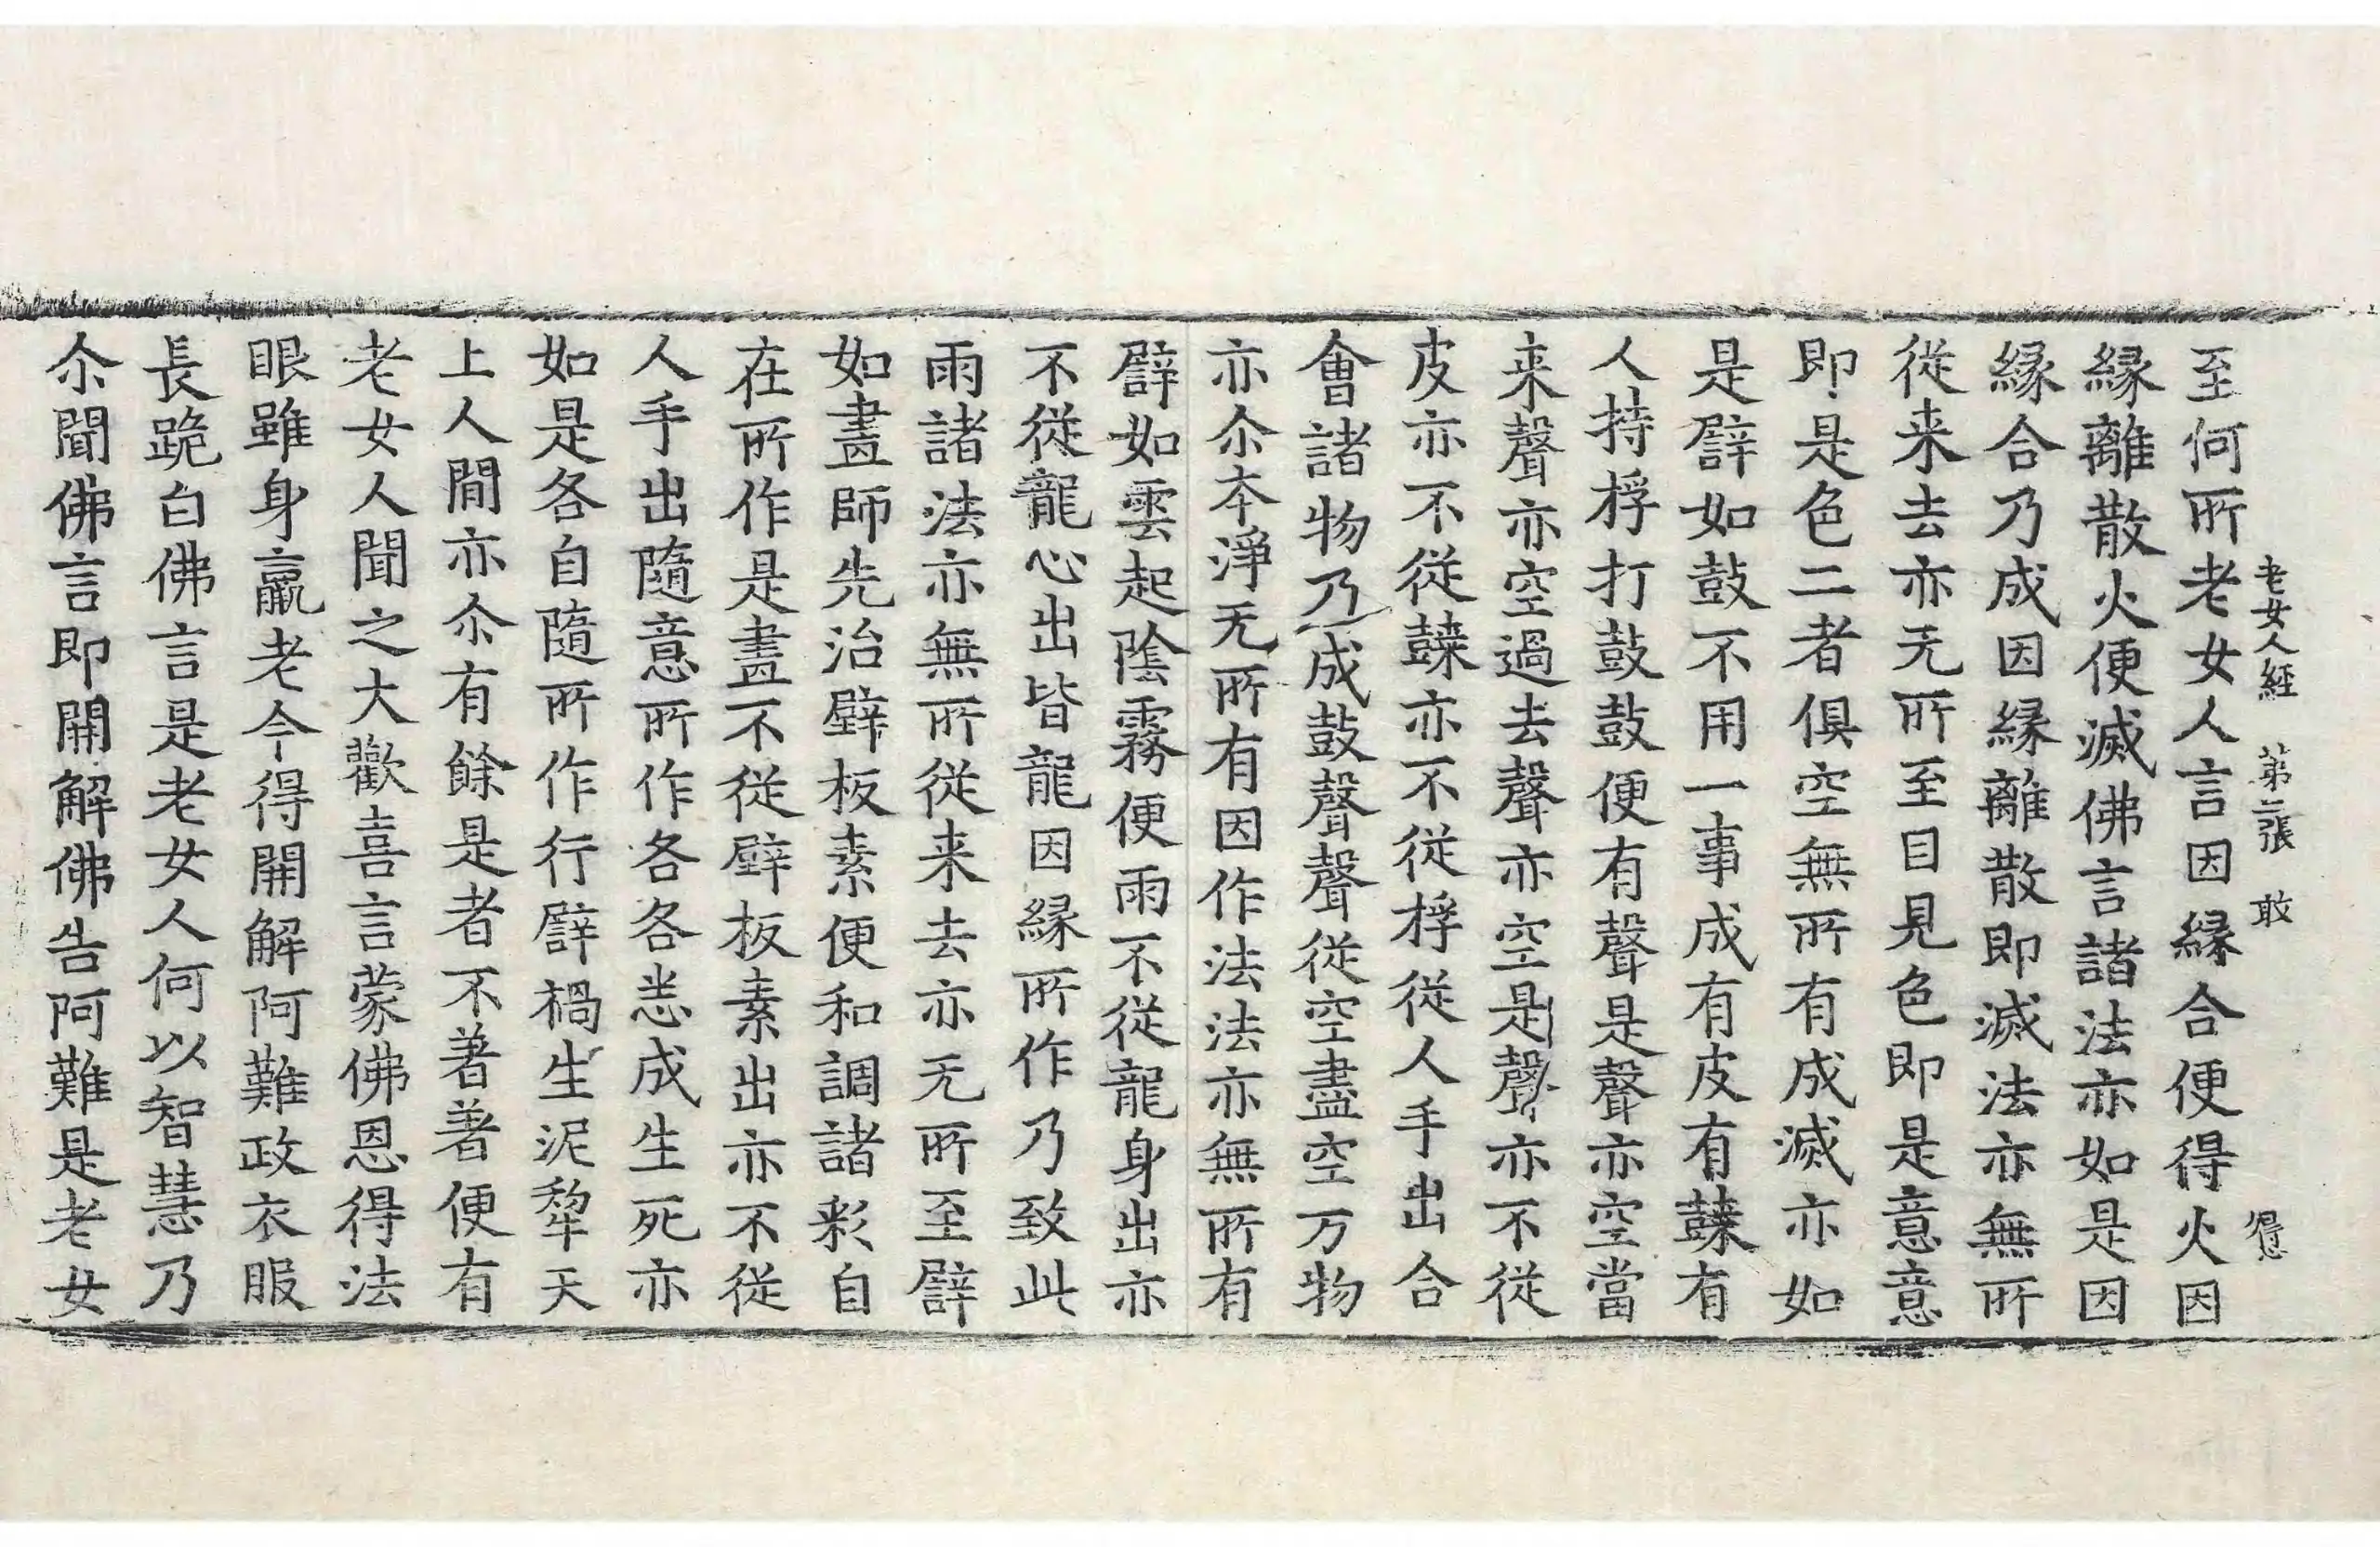 老女人経 第二張 敢 得意
至何所老女人言因縁合便得火因
縁離散火便滅佛言諸法亦如是因
縁合乃成因縁離散即滅法亦無所
従来去亦无所至目見色即是意意
即是色二者俱空無所有成滅亦如
是譬如鼓不用一事成有皮有𪔛有
人持桴打鼓鼓便有聲是聲亦空當
来聲亦空過去聲亦空是聲亦不従
皮亦不従𪔛亦不従桴従人手出合
會諸物乃成鼓聲聲従空盡空万物
亦尒夲淨无所有因作法法亦無所有
譬如雲起陰霧便雨不従龍身出亦
不従龍心出皆龍因縁所作乃致此
雨諸法亦無所従来去亦无所至譬
如畫師先治壁板素便和調諸彩自
在所作是畫不従壁板素出亦不従
人手出隨意所作各各悉成生死亦
如是各自隨所作行譬禍生泥犁天
上人間亦尒有餘是者不著著便有
老女人聞之大歡喜言蒙佛恩得法
眼雖身羸老今得開解阿難政衣服
長跪白佛言是老女人何以智慧乃
尒聞佛言即開解佛告阿難是老女